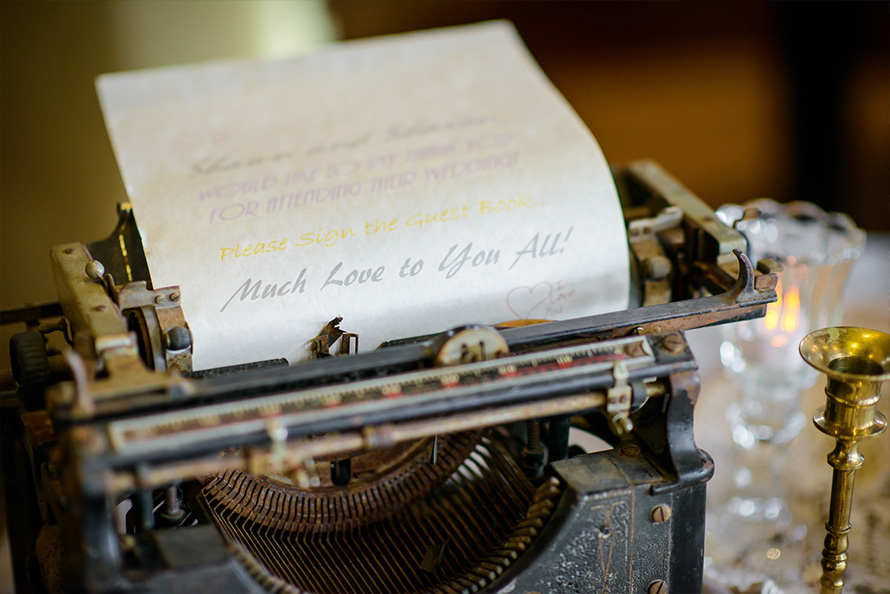 Shawn and
WOULD LIKE TO SAY THANK YOU
FOR ATTENDING THEIR WEDDING!
Please Sign the Guest Book...
Much Love to You All!